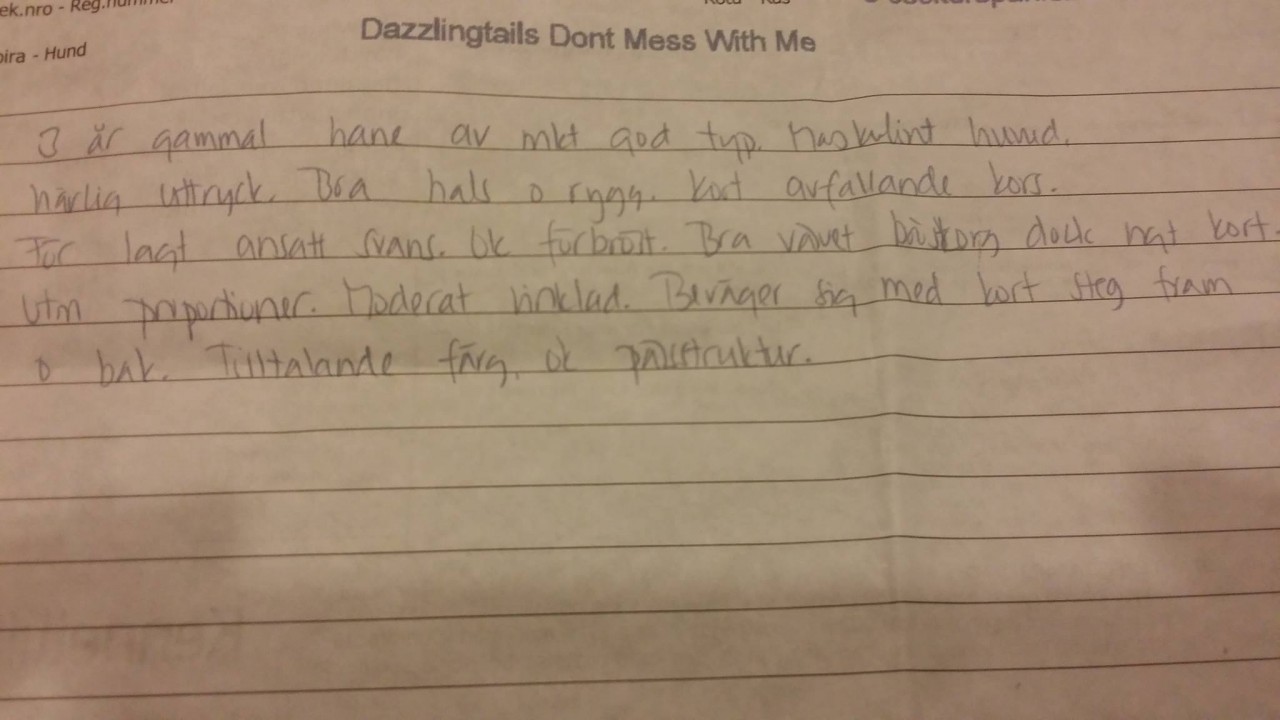 Reg.nummer
Dazzlingtails Dont Mess With Me
- Hund
3 år gammal hane av mkt god typ. Maskulint huvud.
härlig uttryck. Bra hals o rygg. Kort avfallande kors.
För lågt ansatt svans. Ok förbröst. Bra välvet bröstkorg dock ngt kort.
Utm proportioner. Moderat vinklad. Beväger sig med kort steg fram
o bak. Tilltalande färg. ok pälsstruktur.